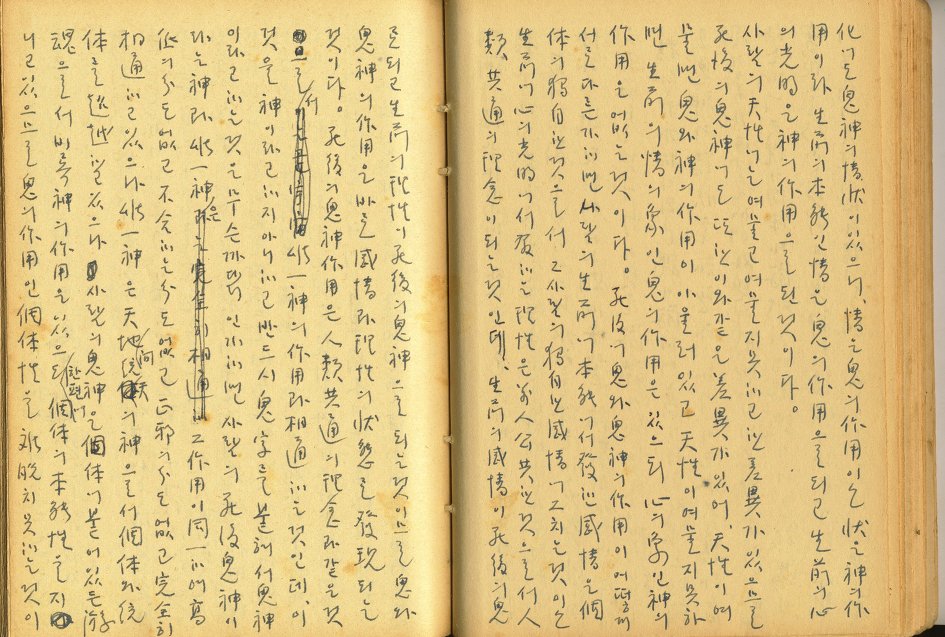 化에도 鬼神의 情狀이 있으니, 情은 鬼의 作用이오 狀은 神의 作
用이라 生前의 本能인 情은 鬼의 作用으로 되고 生前의 心
의 光明은 神의 作用으로 된 것이다。
사람의 天性에는 여물고 여물지 못하고 한 差異가 있으므로
死後의 鬼神에도 또한 이와 같은 差異가 있어, 天性이 여
물면 鬼와 神의 作用이 아울러 있고 天性이 여물지 못하
면 生前의 情의 象인 鬼의 作用은 있으되 心의 象인 神의
作用은 없는 것이다。 死後에 鬼와 神의 作用이 어떻게
서로 다른가 하면 사람의 生前에 本能에서 發한 感情은 個
體의 獨自한 것으로서 그 사람의 獨自한 感情에 그치는 것이오
生前에 心의 光明에서 發하는 理性은 萬人公共한 것으로서 人
類共通의 理念이 되는 것인데、 生前의 感情이 死後의 鬼
로 되고 生前의 理性이 死後의 鬼神으로 되는 것이므로 鬼와
鬼神의 作用은 바로 感情과 理性의 狀態로 發現되는
것이다。 死後의 鬼神作用은 人類共通의 理念과 같은 것
으로서 此一神의 作用과 相通하는 것인데, 이
것을 神이라고 하지 아니하고 반드시 鬼字를 붙여서 鬼神
이라고 하는 것은 무슨 까닭인가 하면 사람의 死後鬼神이
라는 神과 此一神은 그 作用이 同一하여 高
低의 分도 없고 不舍하는 分도 없고 正邪의 分도 없고 完全히
相通하고 있으나 此一神은 天地 의 神으로서 個體와 統
體를 超越하고 있으나 사람의 鬼神은 個體에 붙어있든 游
魂으로서 비록 神의 作用은 있으되 한편에 個體의 本能性을 지
니고 있으므로 鬼의 作用인 個體性을 脫치 못하는 것이